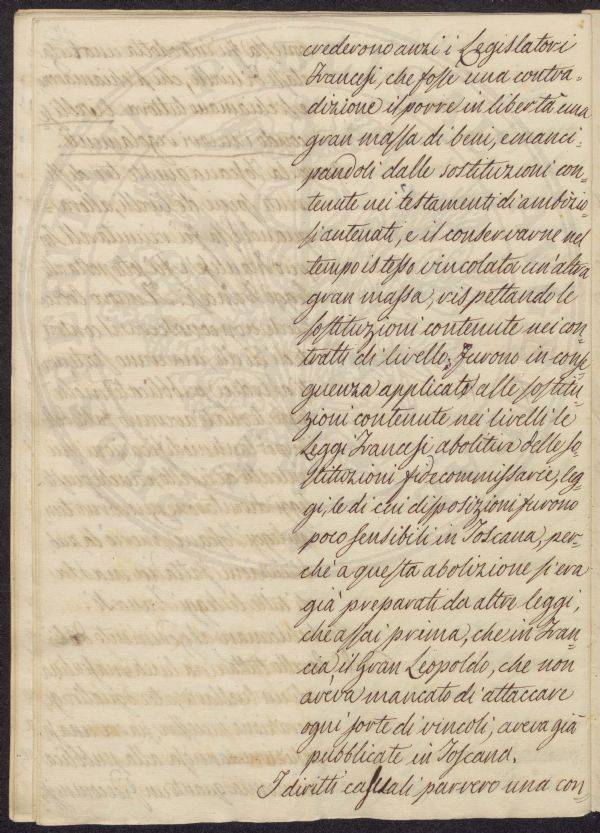 crederono anzi i Legislatori
Francesi, che fosse una contra=
dizione il porre in libertà una
gran massa di beni, emanci=
pandoli dalle sostituzioni con=
tenute nei testamenti di ambizio=
si antenati, e il conservarne nel
tempo istesso vincolata un'altra
gran massa, rispettando le
sostituzioni contenute nei con=
tratti di livello; furono in conse
guenza applicate alle sostitu=
zioni contenute nei livelli le
Leggi Francesi abolitive delle so=
stituzioni fidecommissarie, leg=
gi, le di cui disposizioni furono
poco sensibili in Toscana, per=
chè a questa abolizione si era
già preparati da altre leggi,
che assai prima, che in Fran=
cia, il Gran Leopoldo, che non
aveva mancato di attaccare
ogni sorte di vincoli, aveva già
pubblicate in Toscana.
I diritti casuali parvero una con=